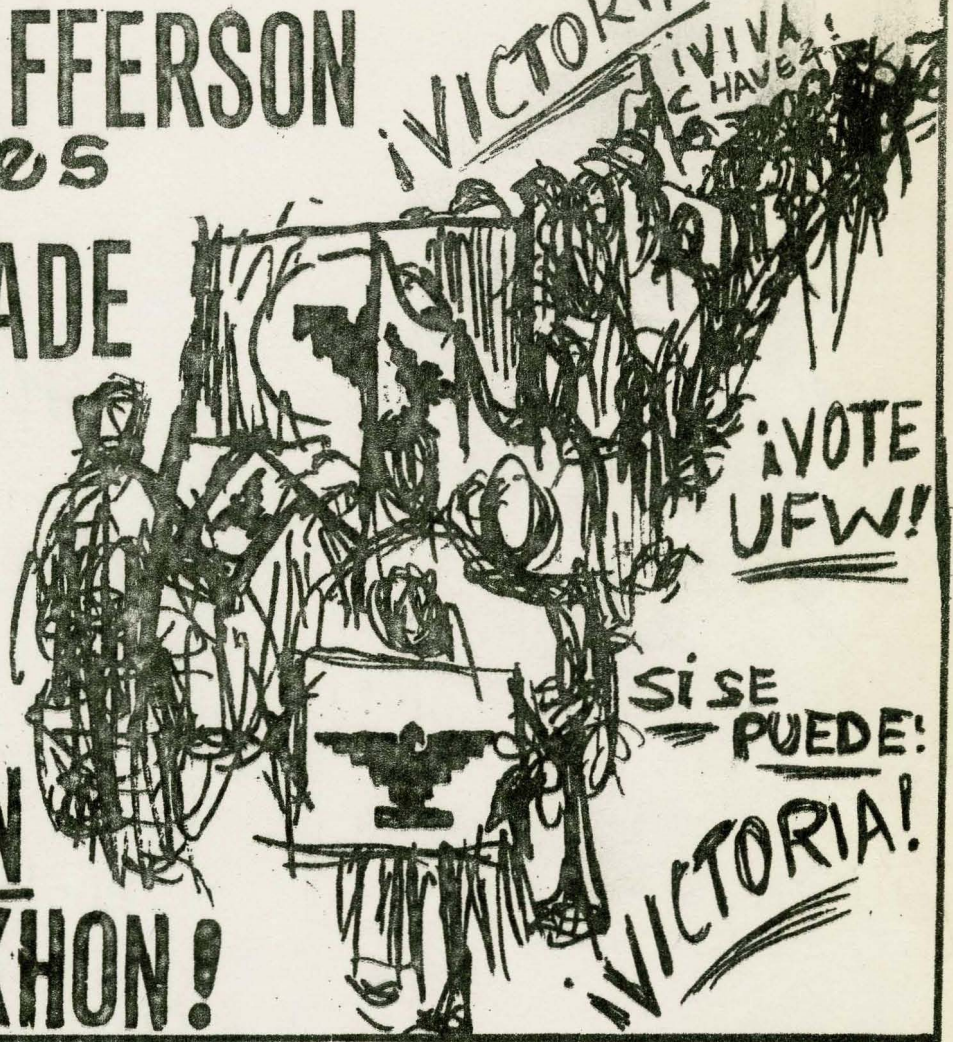 FFERSON
es
ADE
N
KHON!
¡VICTORIA
¡VIVA
CHAVEZ!
¡VOTE
UFW!
Si SE
PUEDE!
¡VICTORIA!